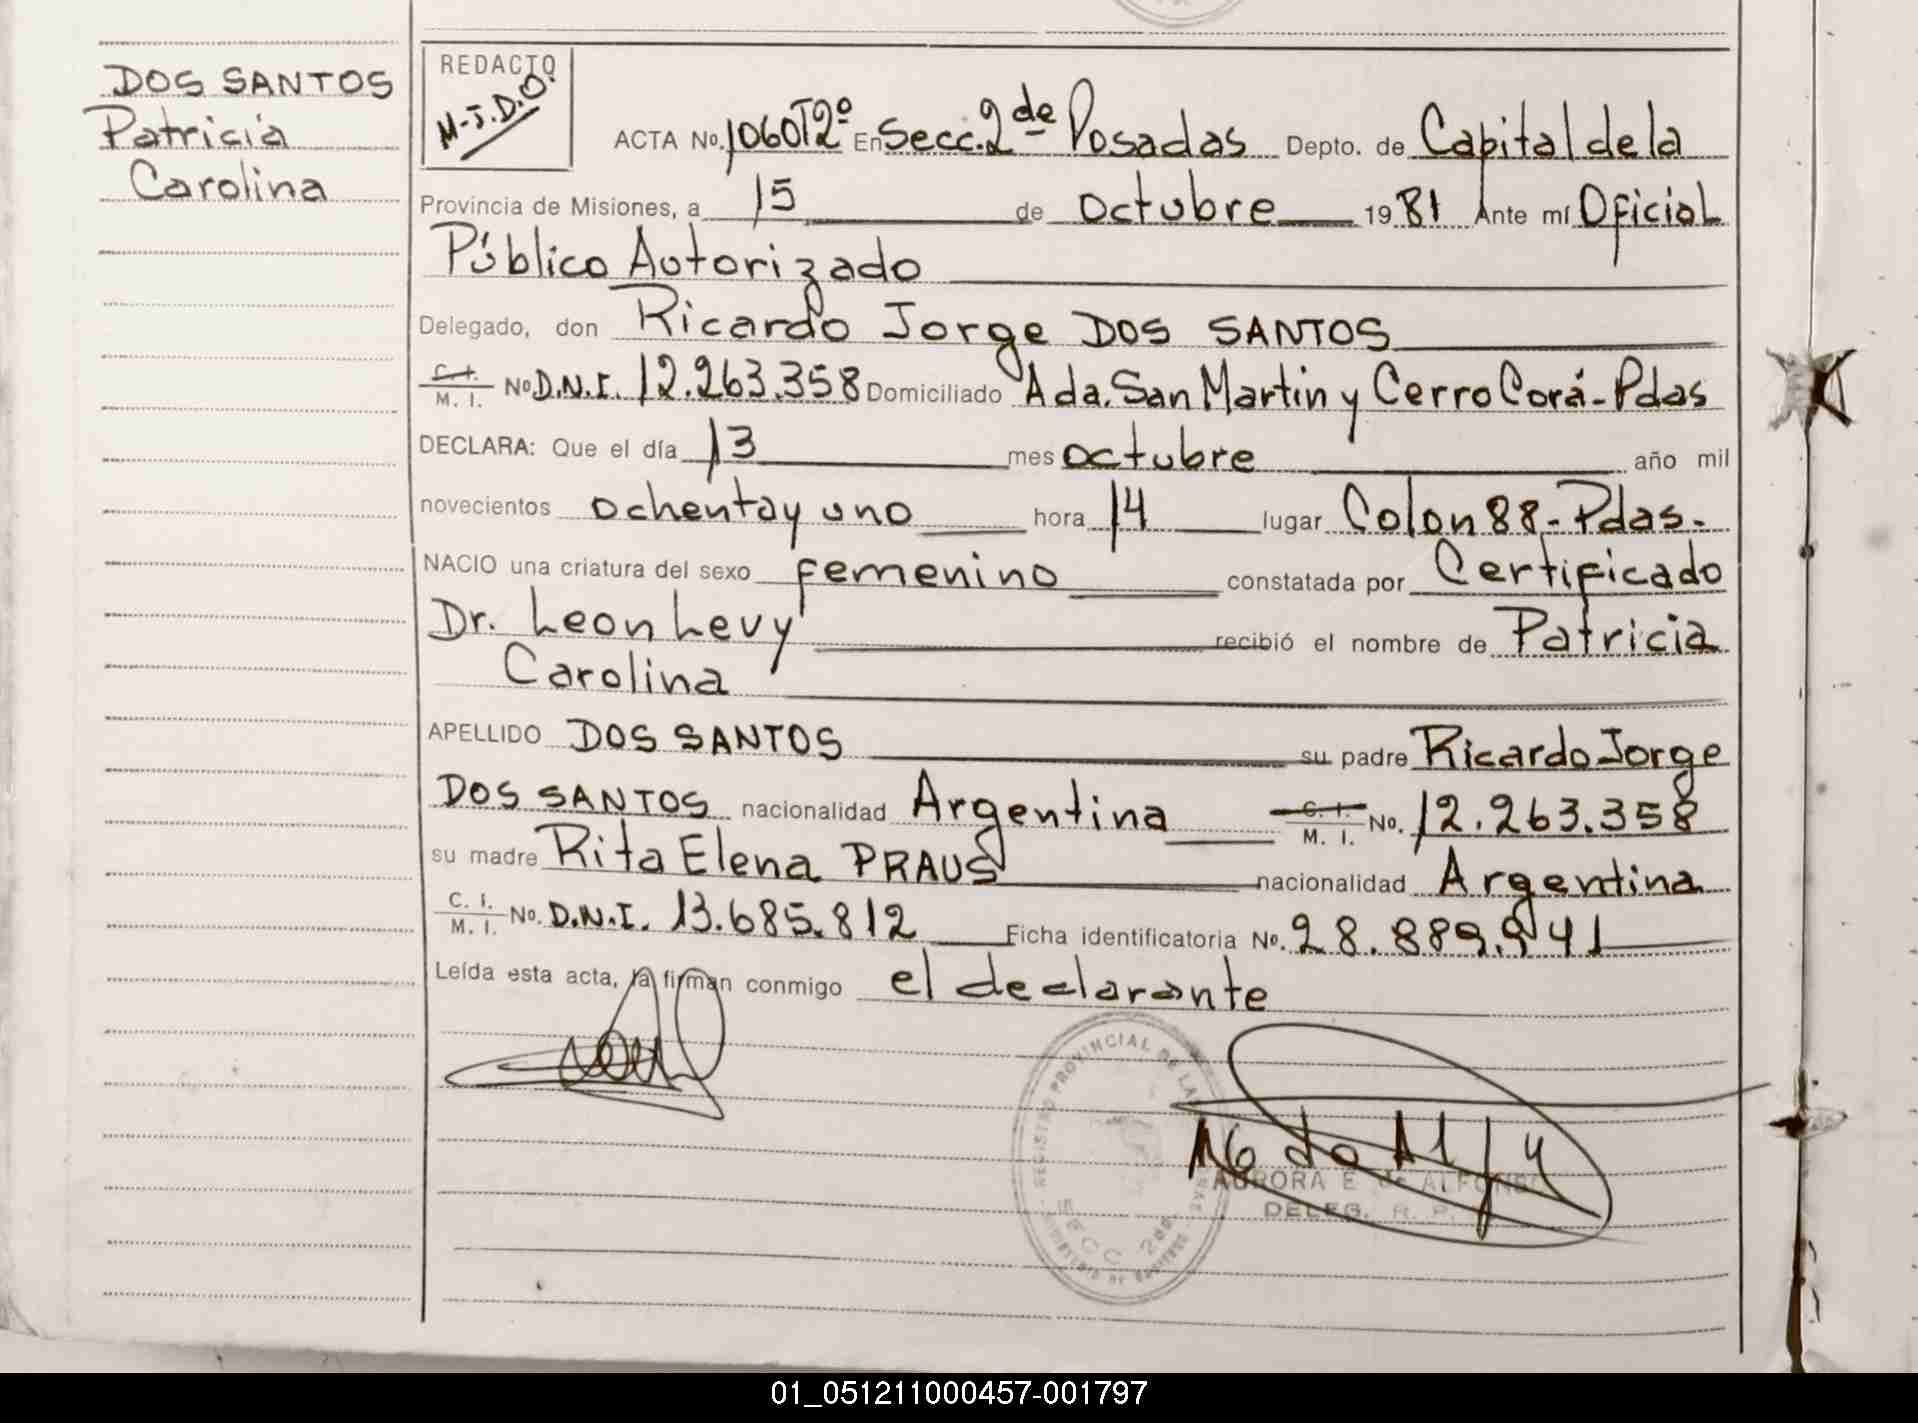 DOS SANTOS
Patricia
Carolina
REDACTO
M-J.D.O.
ACTA No. 1060T2º En Secc. 2 de Posadas Depto. de Capital de la
Provincia de Misiones, a 15 de octubre 1981 Ante mí Oficial
Público Autorizado
Delegado, don Ricardo Jorge DOS SANTOS
C. I. / M. I. No D.N.I. 12.263.358 Domiciliado Ada. San Martin y Cerro Corá - Pdas
DECLARA: Que el día 13 mes octubre año mil
novecientos ochenta y uno hora 14 lugar Colon 88 - Pdas.
NACIO una criatura del sexo femenino constatada por Certificado
Dr. Leon Levy recibió el nombre de Patricia
Carolina
APELLIDO DOS SANTOS su padre Ricardo Jorge
DOS SANTOS nacionalidad Argentina C. I. / M. I. No. 12.263.358
su madre Rita Elena PRAUS nacionalidad Argentina
C. I. / M. I. No. D.N.I. 13.685.812 Ficha identificatoria No. 28.889.941
Leída esta acta, la firman conmigo el declarante
REGISTRO PROVINCIAL DE LAS
SECC 2da
AURORA E. de ALFONSO
DELEG. R. P.
01_051211000457-001797